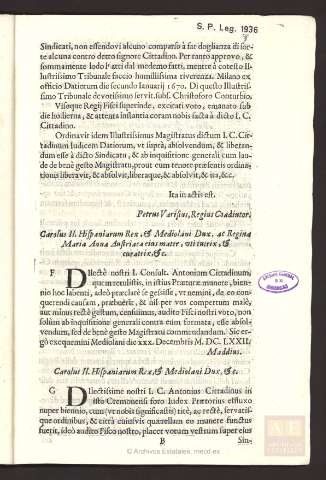 S. P. Leg. 1936
Sindicati, non essendovi alcuno comparso à far doglianza di sorte
alcuna contro detto signore Cittadino. Per tanto approvo, &
sommamente lodo l'atti dal medemo fatti, mentre à cotesto Il-
lustrissimo Tribunale faccio humilissima riverenza. Milano ex
officio Dationum die secundo Ianuarij 1670. Di questo Illustris-
simo Tribunale devotissimo servit. subs. Christoforo Conturbio,
Visoque Regij Fisci superinde, excitati voto, emanato sub
die hodierna, & attenta instantia coram nobis facta à dicto I. C.
Cittadino.
Ordinavit idem Illustrissimus Magistratus dictum I. C. Cit-
tadinum Iudicem Dationum, vt suprà, absolvendum, & liberan-
dum esse à dicto Sindicatu, & ab inquisitione generali cum lau-
de de benè gestis Magistratu, prout cum tenore præsentis ordina-
tionis liberavit, & absolvit, liberatque, & absolvit, & ita, &c.
Ita in actis est.
Petrus Varisius, Regius Coadiutor.
Carolus II. Hispaniarum Rex, & Mediolani Dux, ac Regina
Maria Anna Austriaca eius mater, uti tutrix, &
curatrix, &c.
F Dilectè nostri I. Consult. Antonium Cittadinum,
quæ retulistis, in istius Præturæ munere, bien-
nio hoc labenti, adeò præclarè se gessisse, vt nemini, de eo con-
querendi causam, præbuerit, & nil per vos compertum malè,
aut minus rectè gestum, censuimus, audito Fisci nostri voto, non
solùm ab inquisitione generali contra eum formata, esse absol-
vendum, sed de benè gesto Magistratu commendandum. Sic er-
gò exequemini Mediolani die xxx. Decembris M. DC. LXXII.
Maddius.
Carolus II. Hispaniarum Rex, & Mediolani Dux, &c.
G Dilectissime nostri I. C. Antonius Cittadinus in
isto Cremonensi foro Index Prætorius effluxo
nuper biennio, cum (vt nobis significastis) ritè, ac rectè, servatis-
que ordinibus, & citra cuiusvis querellam eo munere functus
fuerit, ideò audito Fisco nostro, placet votum vestrum super eius
B Sin-
© Archivos Estatales, mecd.es